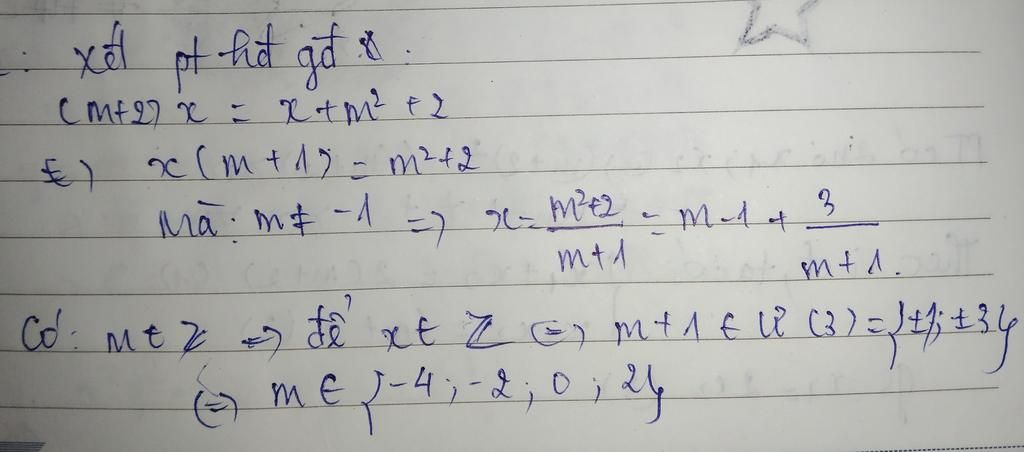 xét pt hđ gđ :
(m+2) x = x + m² + 2
(=) x(m + 1) = m²+2
Mà : m ≠ -1 => x = \frac{m²+2}{m+1} = m - 1 + \frac{3}{m+1}.
Có : m ∈ Z => để x ∈ Z (=) m + 1 ∈ Ư (3) = {±1; ±3}
(=) m ∈ {-4 ; -2 ; 0 ; 2}